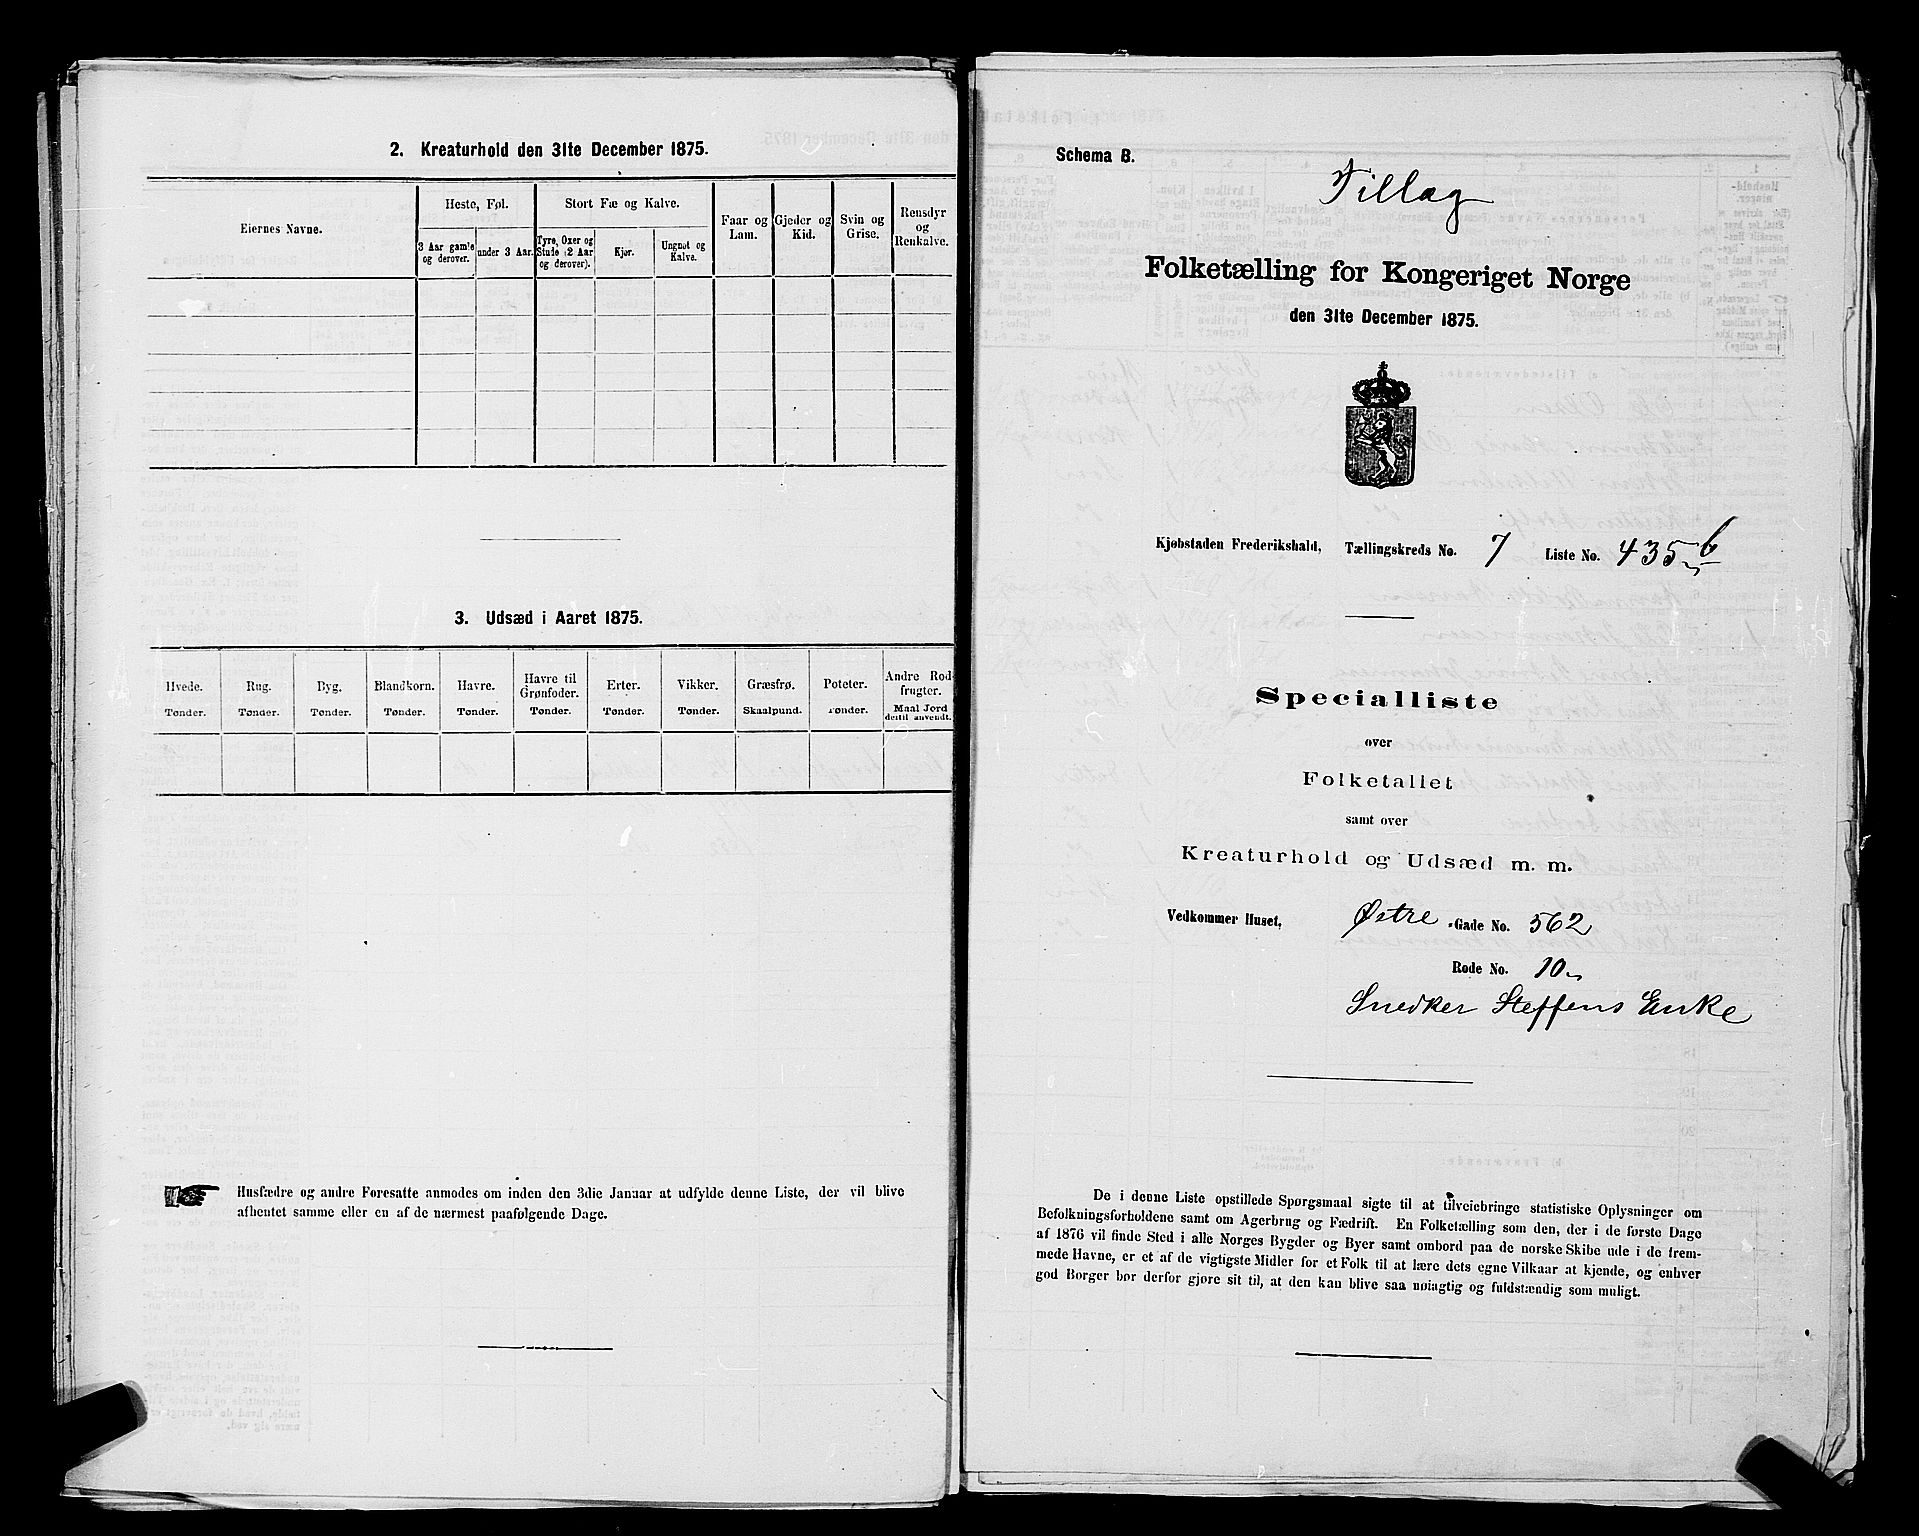 2. Kreaturhold den 31te December 1875.
Eiernes Navne.
Heste, Føl.
3 Aar gamle og derover.
under 3 Aar.
Stort Fæ og Kalve.
Tyre, Oxer og Stude (2 Aar og derover).
Kjør.
Ungnøt og Kalve.
Faar og Lam.
Gjeder og Kid.
Svin og Grise.
Rensdyr og Renkalve.
3. Udsæd i Aaret 1875.
Hvede. Rug. Byg. Blandkorn. Havre. Havre til Grønfoder. Erter. Vikker. Græsfrø. Poteter. Andre Rodfrugter.
Tønder. Tønder. Tønder. Tønder. Tønder. Tønder. Tønder. Tønder. Skaalpund. Tønder. Maal Jord dertil anvendt.
Husfædre og andre Foresatte anmodes om inden den 3die Januar at udfylde denne Liste, der vil blive
afhentet samme eller en af de nærmest paafølgende Dage.
Schema B.
Tillæg
Folketælling for Kongeriget Norge
den 31te December 1875.
Kjøbstaden Frederikshald, Tællingskreds No. 7 Liste No. 435 b
Specialliste
over
Folketallet
samt over
Kreaturhold og Udsæd m. m.
Vedkommer Huset, Østre Gade No. 562
Rode No. 10
Snedker Steffens Enke
De i denne Liste opstillede Spørgsmaal sigte til at tilveiebringe statistiske Oplysninger om
Befolkningsforholdene samt om Agerbrug og Fædrift. En Folketælling som den, der i de første Dage
af 1876 vil finde Sted i alle Norges Bygder og Byer samt ombord paa de norske Skibe ude i de frem-
mede Havne, er et af de vigtigste Midler for et Folk til at lære dets egne Vilkaar at kjende, og enhver
god Borger bør derfor gjøre sit til, at den kan blive saa nøiagtig og fuldstændig som muligt.